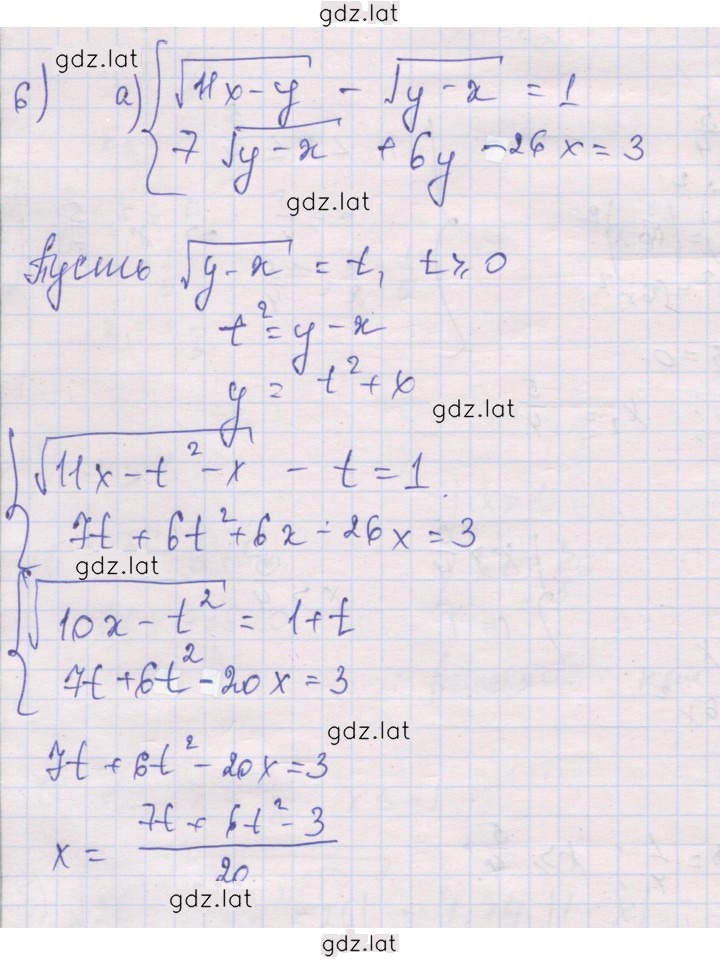 gdz.lat
gdz.lat
6) a) { √(11x - y) - √(y - x) = 1
7 √(y - x) + 6y - 26x = 3
gdz.lat
Пусть √(y - x) = t, t ≥ 0
t² = y - x
y = t² + x
gdz.lat
{ √(11x - t² - x) - t = 1
7t + 6t² + 6x - 26x = 3
gdz.lat
{ √(10x - t²) = 1 + t
7t + 6t² - 20x = 3
gdz.lat
7t + 6t² - 20x = 3
x = (7t + 6t² - 3) / 20
gdz.lat
gdz.lat